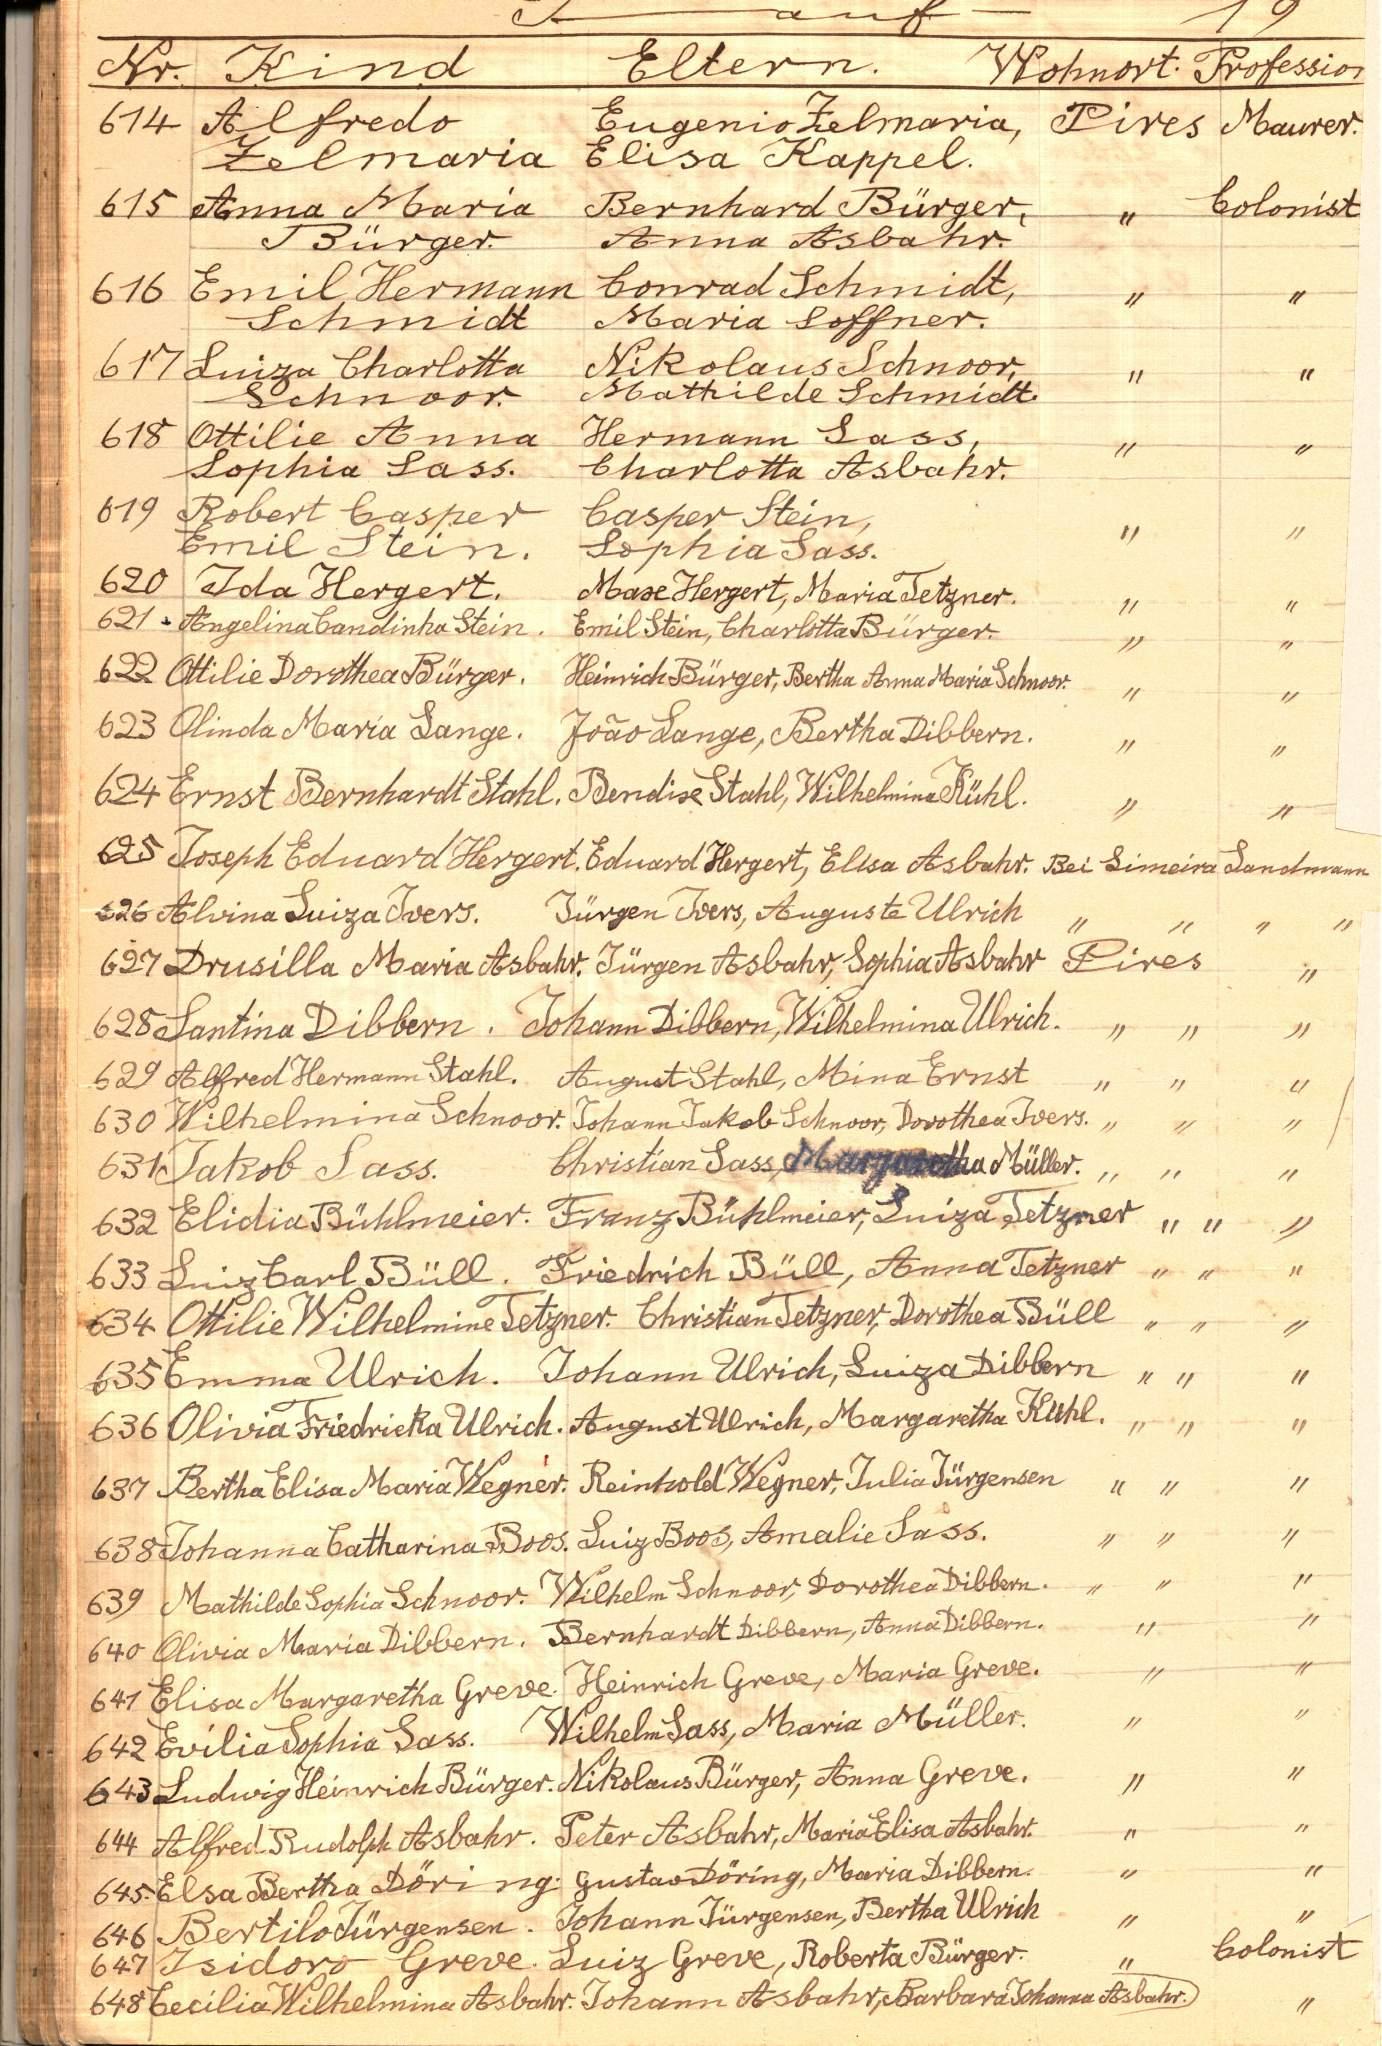 Tauf 19
Nr. Kind Eltern. Wohnort. Profession
614 Alfredo Eugenio Zelmaria, Pires Maurer.
Zelmaria Elisa Kappel.
615 Anna Maria Bernhard Bürger, " Colonist
Bürger. Anna Asbahr.
616 Emil Hermann Conrad Schmidt, " "
Schmidt Maria Loffner.
617 Luiza Charlotta Nikolaus Schnoor, " "
Schnoor. Mathilde Schmidt.
618 Ottilie Anna Hermann Sass, " "
Sophia Sass. Charlotta Asbahr.
619 Robert Casper Casper Stein, " "
Emil Stein. Sophia Sass.
620 Ida Hergert. Max Hergert, Maria Tetzner. " "
621 Angelina Candinha Stein. Emil Stein, Charlotta Bürger. " "
622 Ottilie Dorothea Bürger. Heinrich Bürger, Bertha Anna Maria Schnoor. " "
623 Olinda Maria Lange. João Lange, Bertha Dibbern. " "
624 Ernst Bernhardt Stahl. Bendix Stahl, Wilhelmina Kühl. " "
625 Joseph Eduard Hergert. Eduard Hergert, Elisa Asbahr. Bei Limeira Landmann
626 Alvina Luiza Ivers. Jürgen Ivers, Auguste Ulrich " " " "
627 Drusilla Maria Asbahr. Jürgen Asbahr, Sophia Asbahr Pires "
628 Santina Dibbern. Johann Dibbern, Wilhelmina Ulrich. " " "
629 Alfred Hermann Stahl. August Stahl, Mina Ernst " " "
630 Wilhelmina Schnoor. Johann Jakob Schnoor, Dorothea Ivers. " " "
631 Jakob Sass. Christian Sass, Margaretha Müller. " " "
632 Elidia Bühlmeier. Franz Bühlmeier, Luiza Tetzner " " "
633 Luiz Carl Büll. Friedrich Büll, Anna Tetzner " " "
634 Ottilie Wilhelmine Tetzner. Christian Tetzner, Dorothea Büll " " "
635 Emma Ulrich. Johann Ulrich, Luiza Dibbern " " "
636 Olivia Friedricka Ulrich. August Ulrich, Margaretha Kuhl. " " "
637 Bertha Elisa Maria Wegner. Reinhold Wegner, Julia Jürgensen " " "
638 Johanna Catharina Boos. Luiz Boos, Amalie Sass. " " "
639 Mathilde Sophia Schnoor. Wilhelm Schnoor, Dorothea Dibbern. " " "
640 Olivia Maria Dibbern. Bernhardt Dibbern, Anna Dibbern. " "
641 Elisa Margaretha Greve. Heinrich Greve, Maria Greve. " "
642 Evilia Sophia Sass. Wilhelm Sass, Maria Müller. " "
643 Ludwig Heinrich Bürger. Nikolaus Bürger, Anna Greve. " "
644 Alfred Rudolph Asbahr. Peter Asbahr, Maria Elisa Asbahr. " "
645. Elsa Bertha Döring. Gustav Döring, Maria Dibbern. " "
646 Bertilo Jürgensen. Johann Jürgensen, Bertha Ulrich " "
647 Isidoro Greve. Luiz Greve, Roberta Bürger. " Colonist
648 Cecilia Wilhelmina Asbahr. Johann Asbahr, Barbara Johanna Asbahr. "